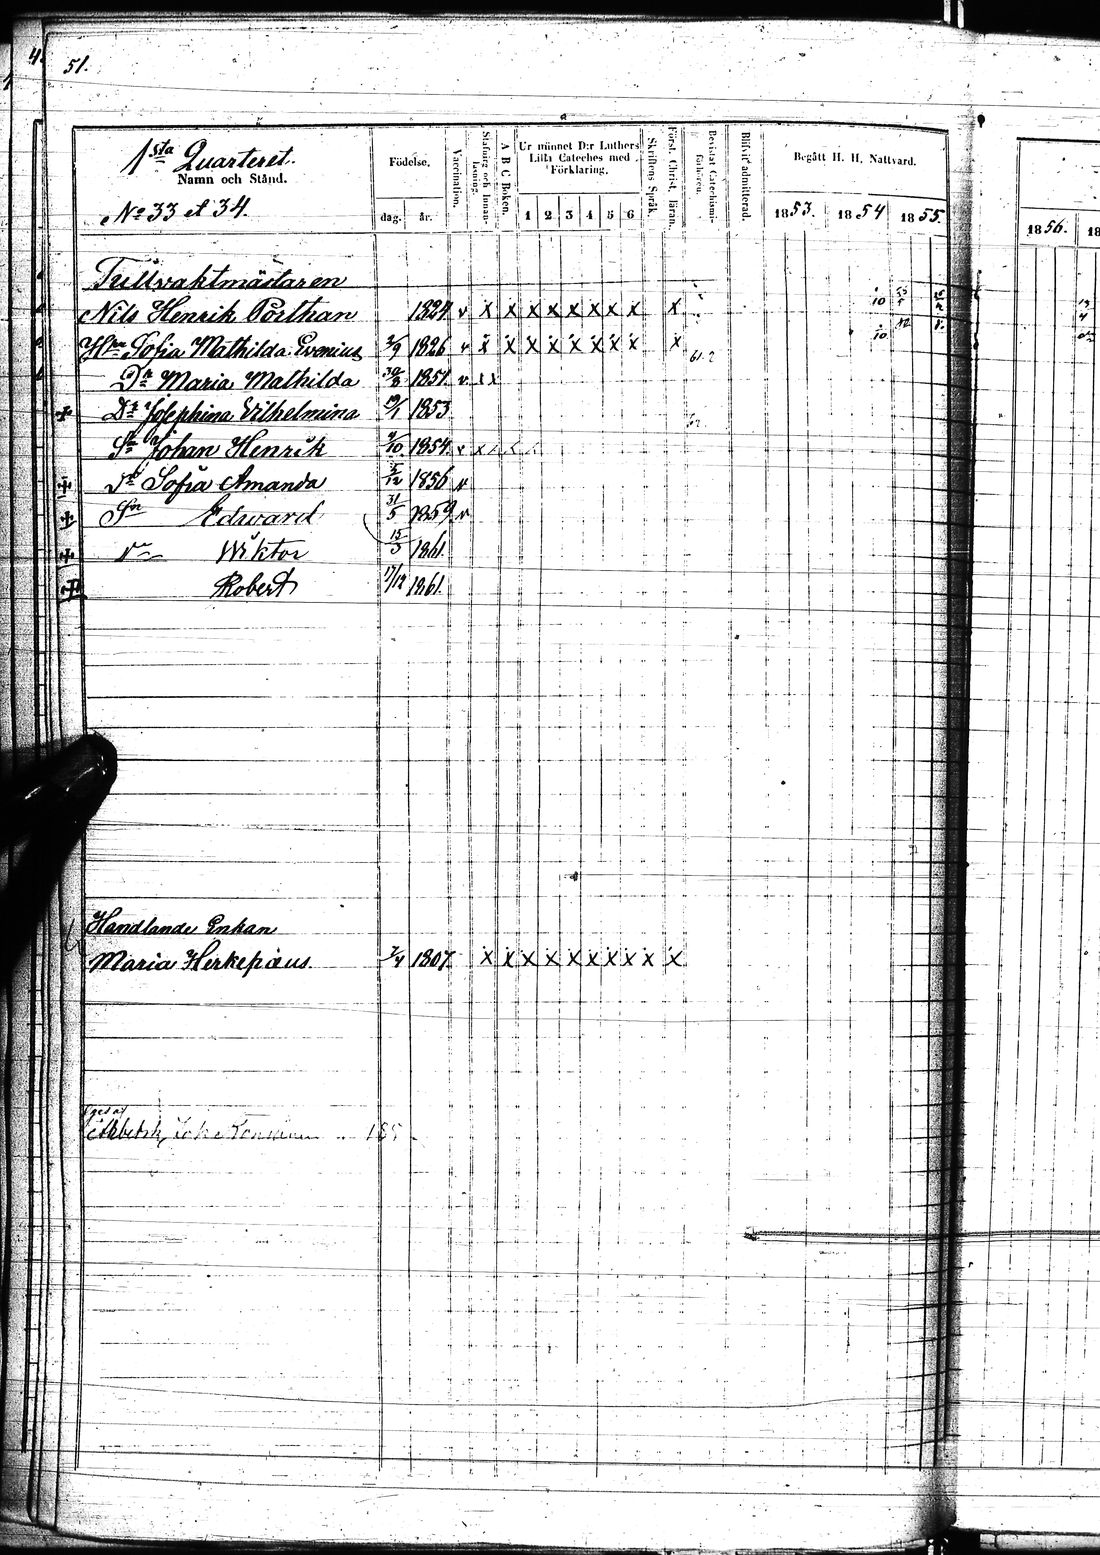 51.
1sta Quarteret.
Namn och Stånd.
No 33 et 34.
Födelse.
dag. år.
Vaccination.
Stafning och Innanläsning.
A B C Boken.
Ur minnet D:r Luthers Lilla Cateches med Förklaring.
1 2 3 4 5 6
Skriftens Språk.
Först. Christ. läran.
Bevistat Catechismi-förhören.
Blifvit admitterad.
Begått H. H. Nattvard.
1853. 1854 1855.
1856.
Tullvaktmästaren
Nils Henrik Pörthan 1824 v x x x x x x x x x
Hru Sofia Mathilda 2/9 1826 v x x x x x x x x x
Dr Maria Mathilda 30/8 1851 v x x
Dr Josephina Vilhelmina 19/1 1853
Sn Johan Henrik 1854. v x
Dr Sofia Amanda 5/12 1856 v
Sn Edward 31/5 1859 v
Wiktor 15/3 1861.
Robert 17/12 1861.
Handlande Enkan
Maria Herkepæus. 7/4 1807. x x x x x x x x x x